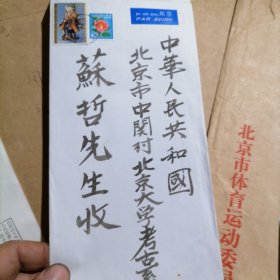 PAR AVION
中華人民共和國
北京市中関村北京大学考古系
蘇哲先生收
北京市体育运动委员